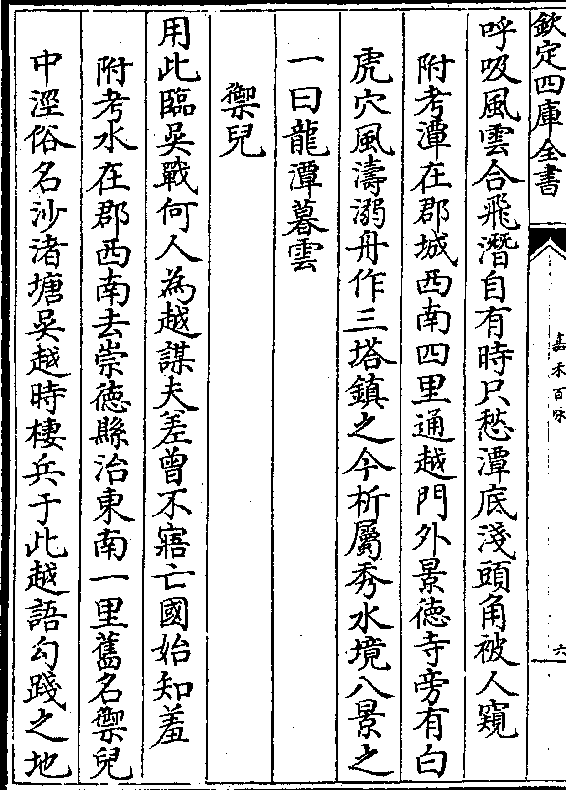 欽定四庫全書
嘉禾百咏
六
呼吸風雲合飛潛自有時只愁潭底淺頭角被人窺
附考潭在郡城西南四里通越門外景徳寺旁有白
虎穴風濤溺舟作三塔鎮之今析屬秀水境八景之
一曰龍潭暮雲
禦兒
用此臨吳戰何人為越謀夫差曾不寤亡國始知羞
附考水在郡西南去崇徳縣治東南一里舊名禦兒
中涇俗名沙渚塘吳越時棲兵于此越語勾踐之地